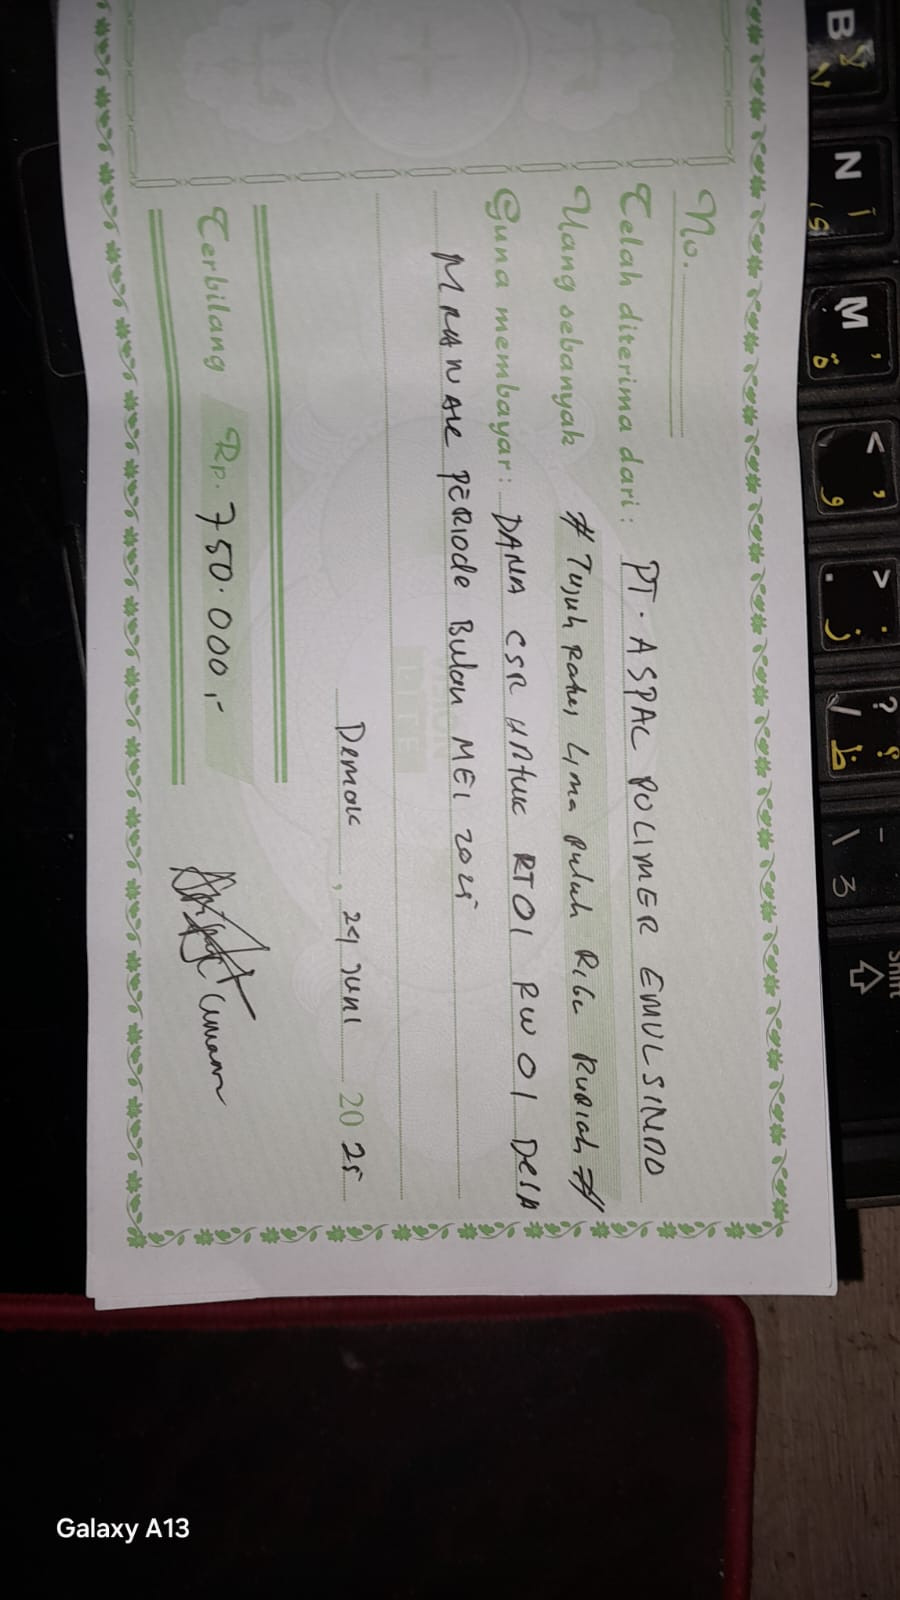 No.
Telah diterima dari : PT. ASPAC POLIMER EMULSINDO
Uang sebanyak # Tujuh Ratus Lima Puluh Ribu Rupiah #
Guna membayar : DANA CSR UNTUK RT01 RW 01 DESA
MRANAK PERIODE Bulan MEI 2025
Demak, 24 JUNI 2025
Terbilang Rp. 750.000,-
B
N
M
<
,
>
.
?
/
\
Shift
Galaxy A13